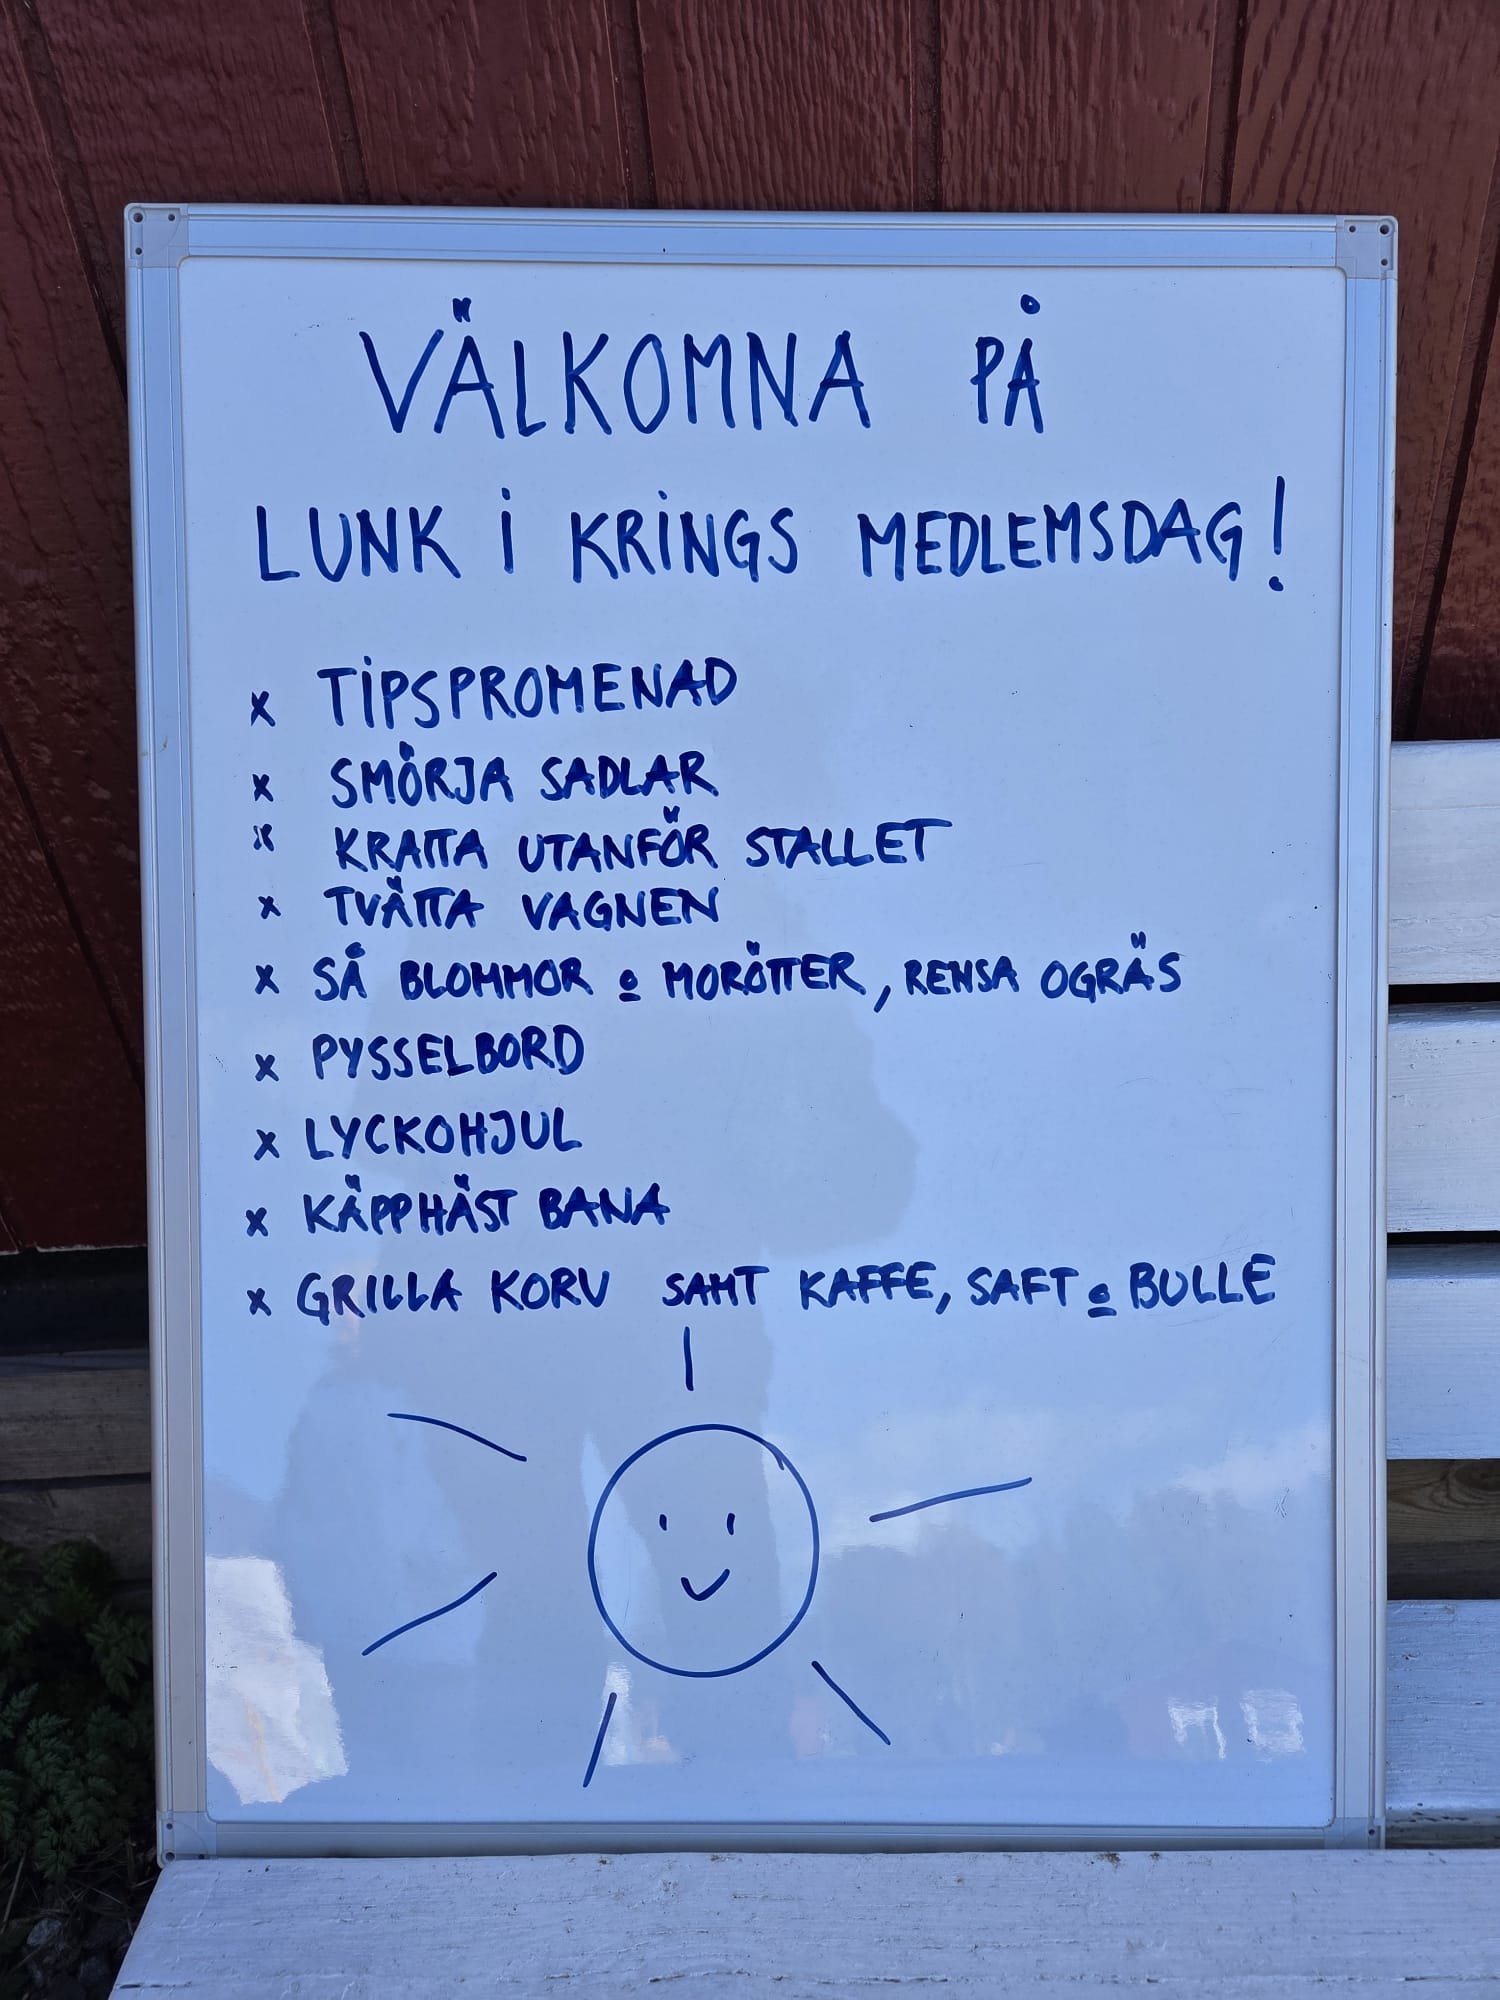 VÄLKOMNA PÅ
LUNK I KRINGS MEDLEMSDAG!
x TIPSPROMENAD
x SMÖRJA SADLAR
x KRATTA UTANFÖR STALLET
x TVÄTTA VAGNEN
x SÅ BLOMMOR o MORÖTTER, RENSA OGRÄS
x PYSSELBORD
x LYCKOHJUL
x KÄPPHÄST BANA
x GRILLA KORV SAMT KAFFE, SAFT o BULLE